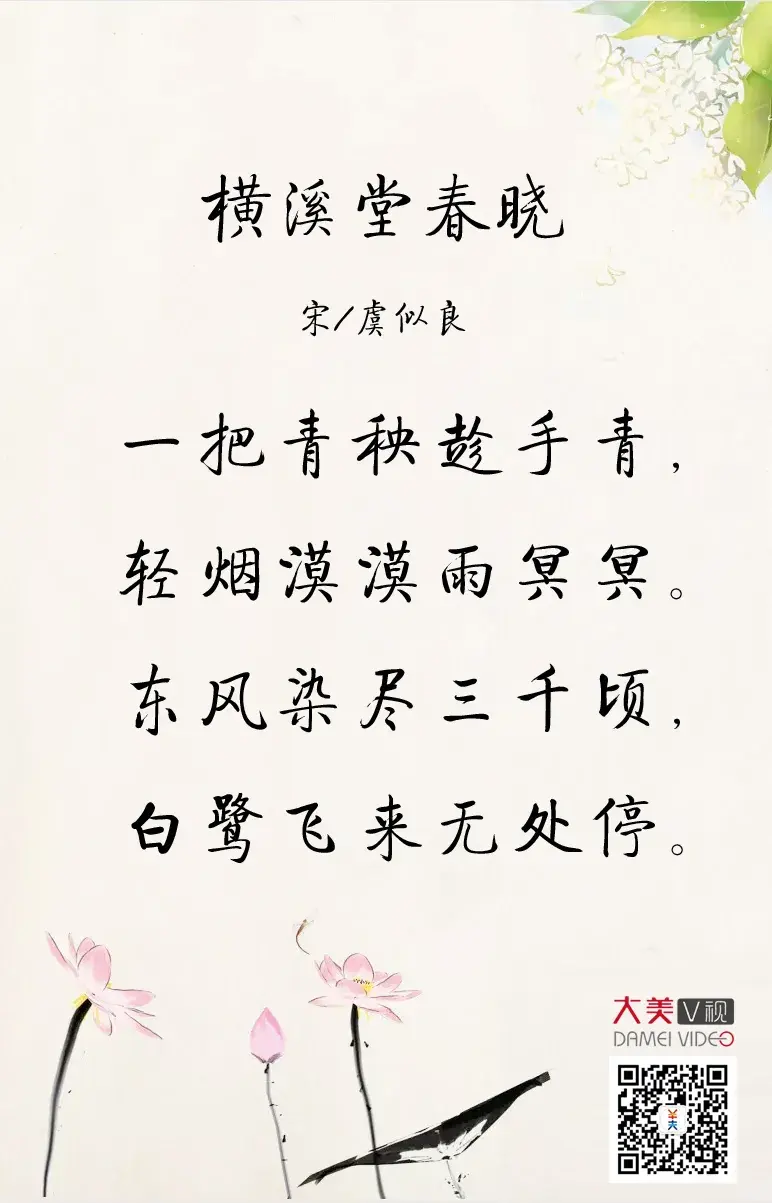 横溪堂春晓
宋/虞似良
一把青秧趁手青，
轻烟漠漠雨冥冥。
东风染尽三千顷，
白鹭飞来无处停。
大美V视
DAMEI VIDEO
美